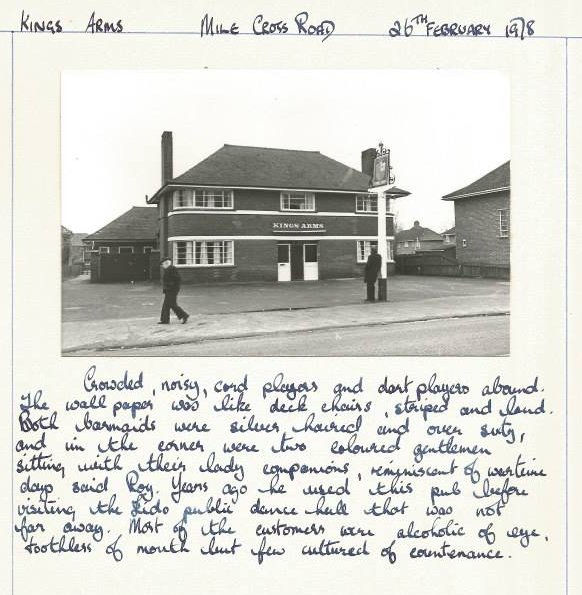 KINGS ARMS MILE CROSS ROAD 26TH FEBRUARY 1978
KINGS ARMS
Crowded, noisy, card players and dart players abound.
The wall paper was like deck chairs, striped and loud.
Both barmaids were silver haired and over sixty,
and in the corner were two coloured gentlemen
sitting with their lady companions, reminiscent of wartime
days said Roy. Years ago he used this pub before
visiting the Lido public dance hall that was not
far away. Most of the customers were alcoholic of eye,
toothless of mouth but few cultured of countenance.